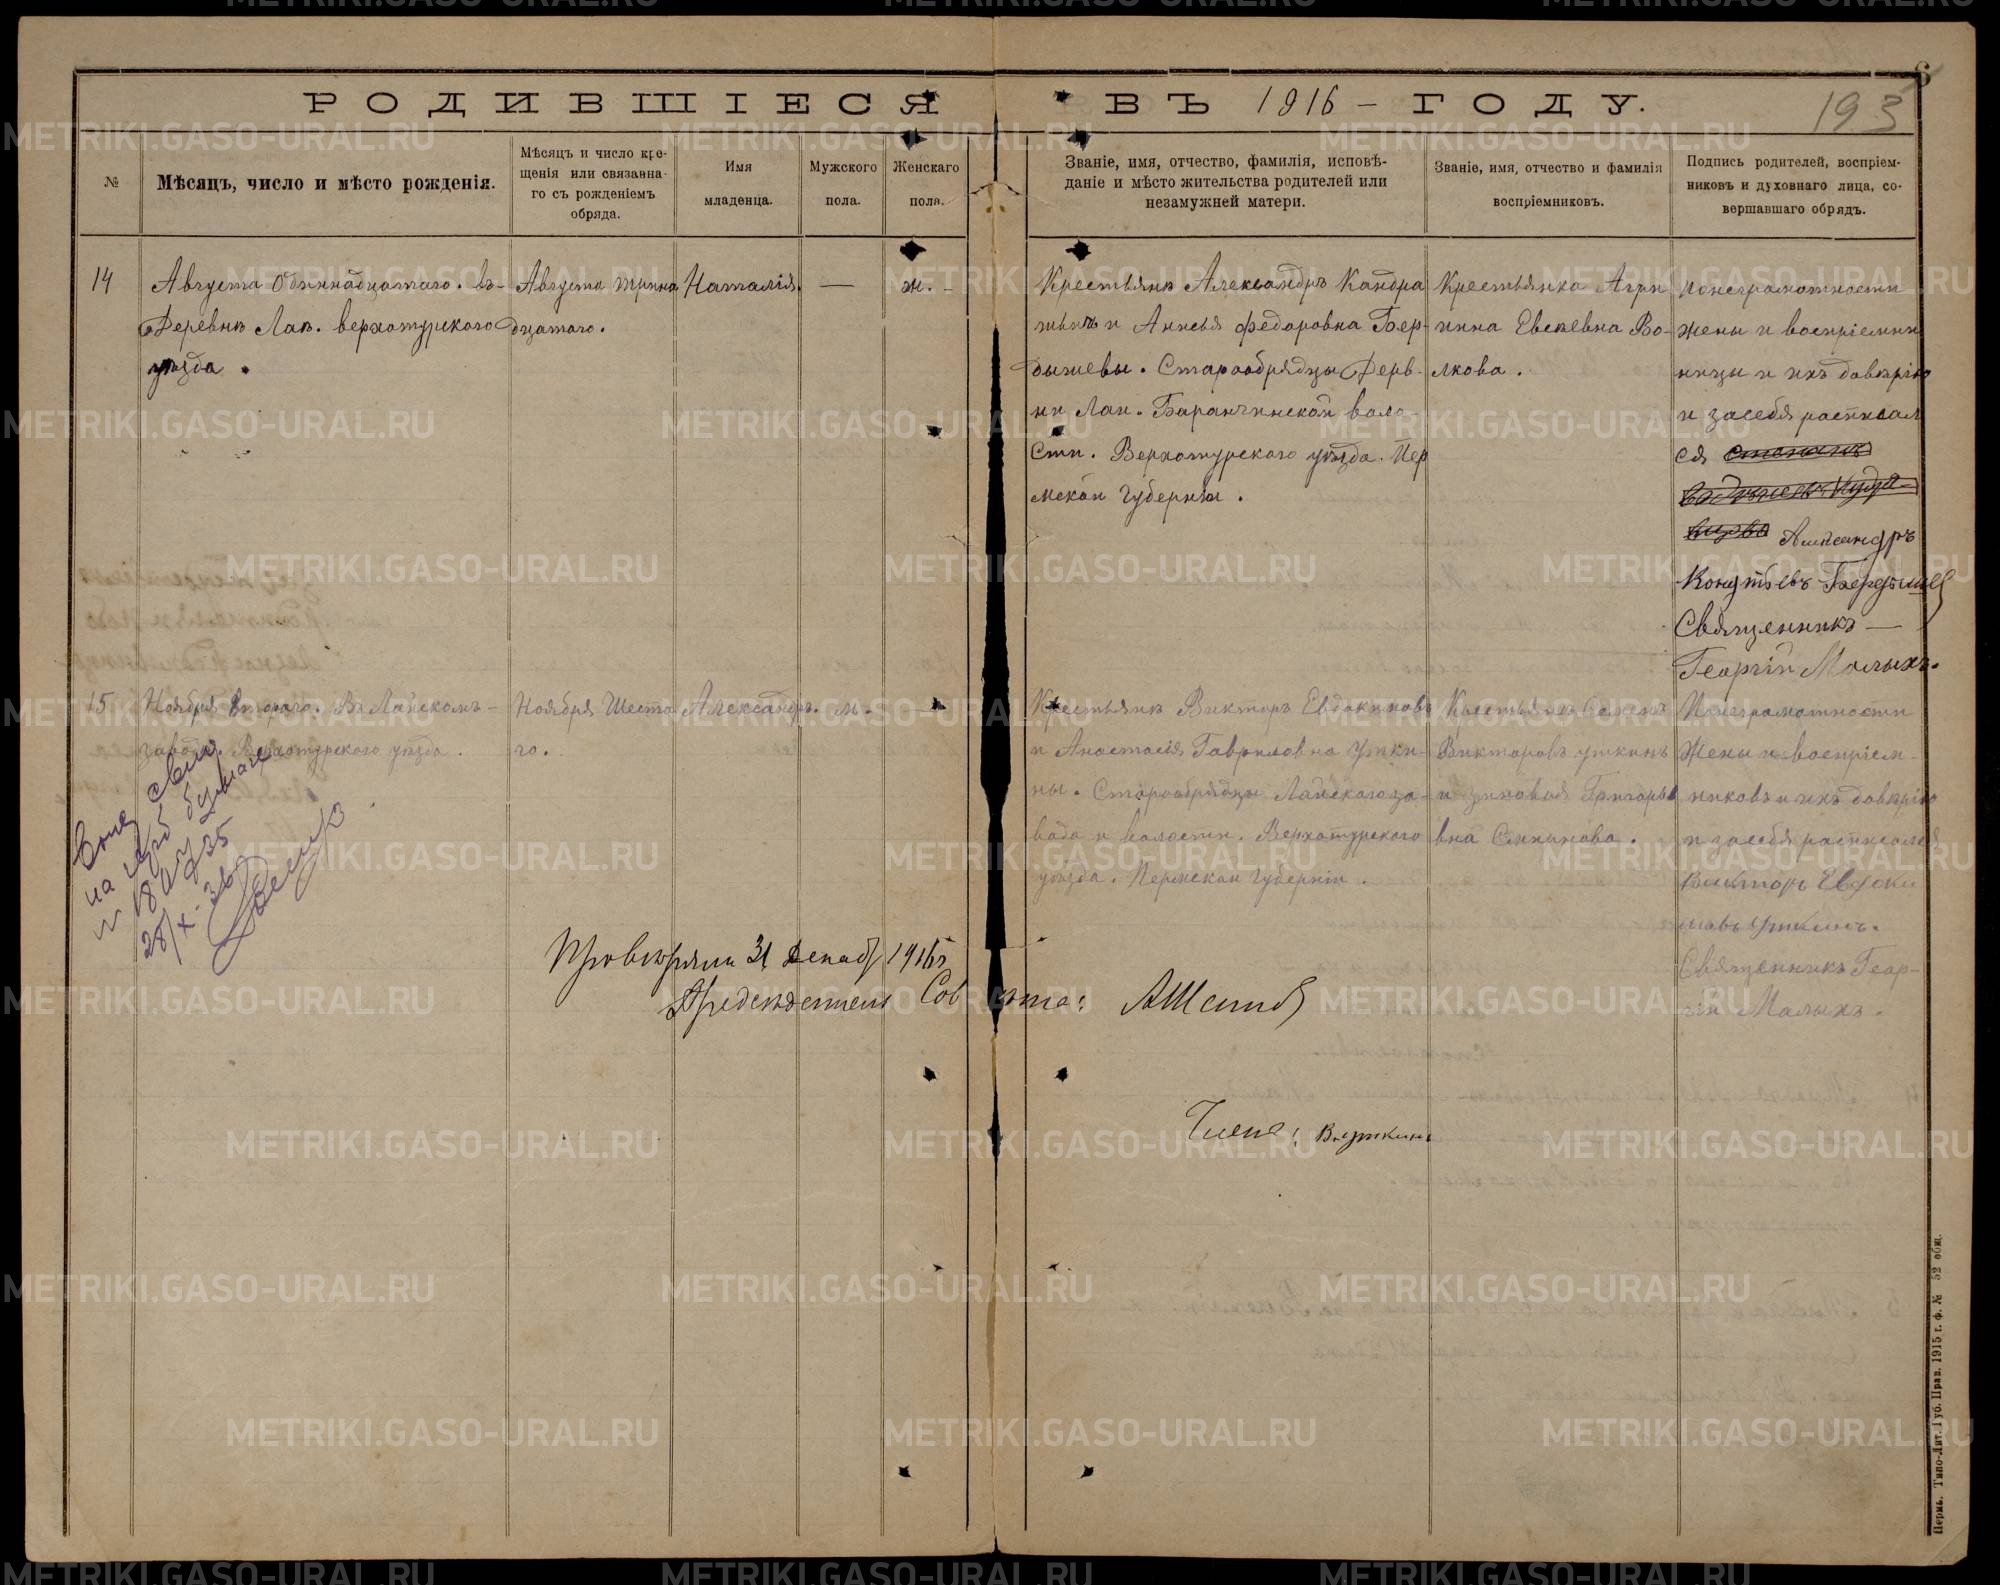 РОДИВШІЕСЯ ВЪ 1916 – ГОДУ.
193
№
Мѣсяцъ, число и мѣсто рожденія.
Мѣсяцъ и число кре-
щенія или связанна-
го съ рожденіемъ
обряда.
Имя
младенца.
Мужского
пола.
Женскаго
пола.
Званіе, имя, отчество, фамилія, исповѣ-
даніе и мѣсто жительства родителей или
незамужней матери.
Званіе, имя, отчество и фамилія
воспріемниковъ.
Подпись родителей, воспріем-
никовъ и духовнаго лица, со-
вершавшаго обрядъ.
14
Августа Одиннадцатаго. въ-
Деревнѣ Лак. верхотурского
уѣзда.
Августа трина
дцатого.
Наталія.
—
ж. -
Крестьянъ Александръ Кандра
тьичъ и Анисья Федоровна Бер-
дышевы. Старообрядцы Дерв-
ни Лаи. Баранчинской воло-
сти. Верхотурского уѣзда. Пер
мской губерніи.
Крестьянка Агри
пина Евсѣевна Во-
лкова.
Понеграмотности
жены и воспріемни
ницы и ихъ довѣрію
и засебя расписал
ся
Александръ
Кондтьевъ Бердышев
Священникъ —
Георгій Малыхъ.
15
Ноября Второго. Въ Лайскомъ-
заводѣ. Верхотурского уѣзда.
Ноября Шеста
го.
Александръ.
м.
—
Крестьянъ Викторъ Евдокимовъ
и Анастасія Гавриловна Утки-
ны. Старообрядцы Лайского за-
вода и волости. Верхотурского
уѣзда. Пермской губерніи.
Крестьянъ Семенъ
Викторовъ уткинъ
и Зиновия Григорье
вна
Понеграмотности
Жены и воспріем-
никовъ и ихъ довѣрію
и засебя расписался
Викторъ Евдоки
мовъ Уткинъ.
Священникъ Геор-
гій Малыхъ.
на бумаге
28/X-36
Провѣряли 31 Декаб 1916 г
Предсѣдатель Совѣта:
Члены:
Пермь. Типо-Лит. Губ. Прав. 1915 г. ф. № 52 общ.
METRIKI.GASO-URAL.RU